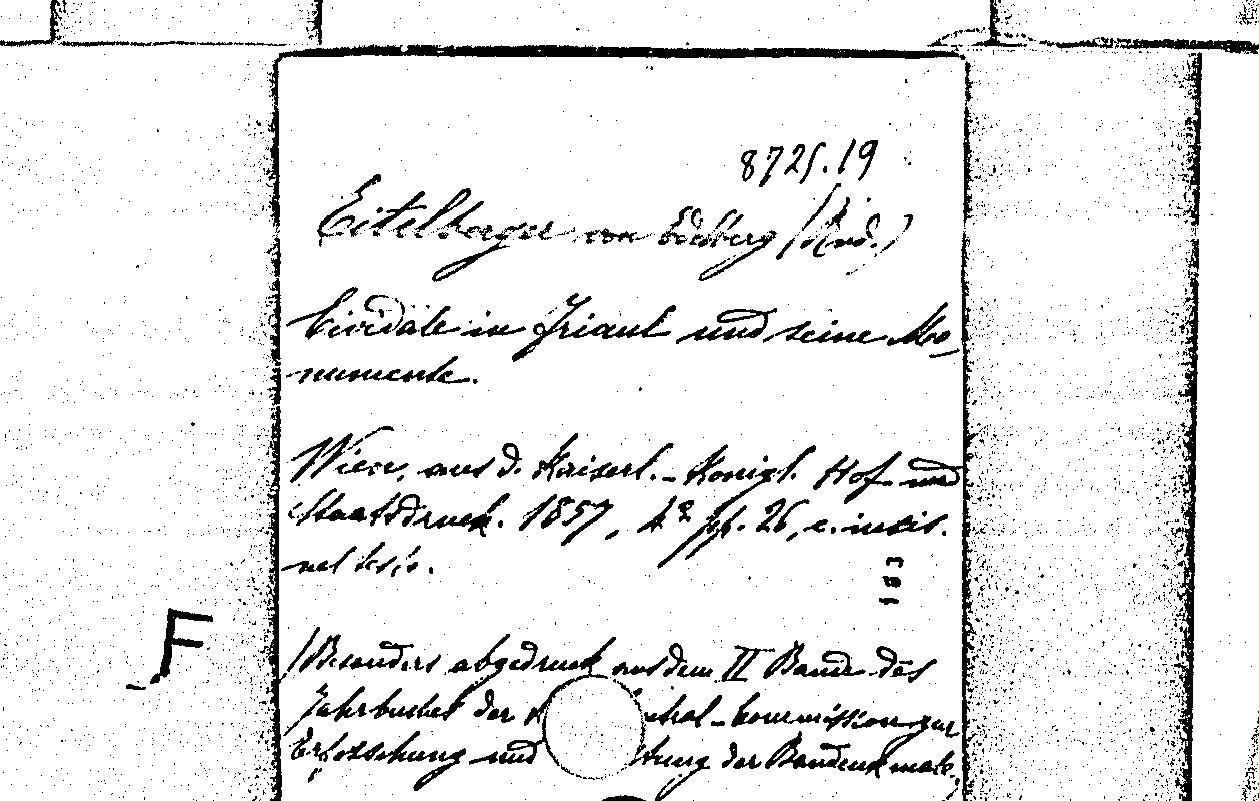 8725.19
Eitelberger von Edelberg (Rud.)
Cividale in Friaul und seine Mo-
numente.
Wien, aus d. Kaiserl.-Königl. Hof- und
Staatsdruck. 1857, 4° pp. 26, c. incis.
nel testo.
103
F
(Besonders abgedruck aus dem II Bande des
Jahrbuches der tral-Commission zur
Erforschung und tung der Baudenkmale,